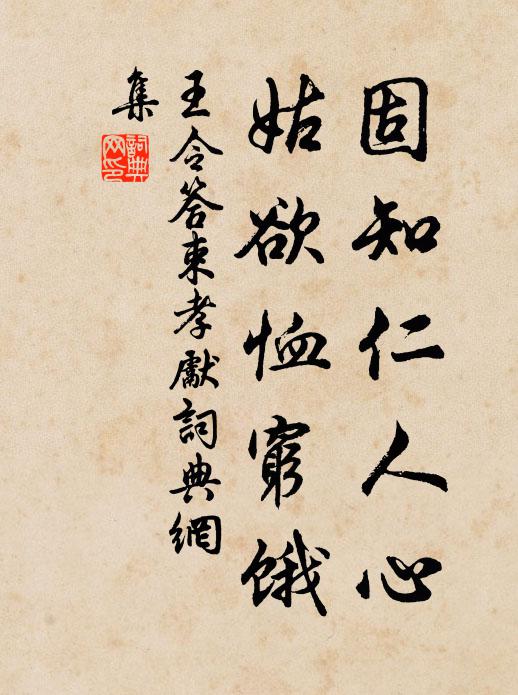 固知仁人心
姑欲恤窮餓
王令答束孝獻詞典網
集
詞典
网印